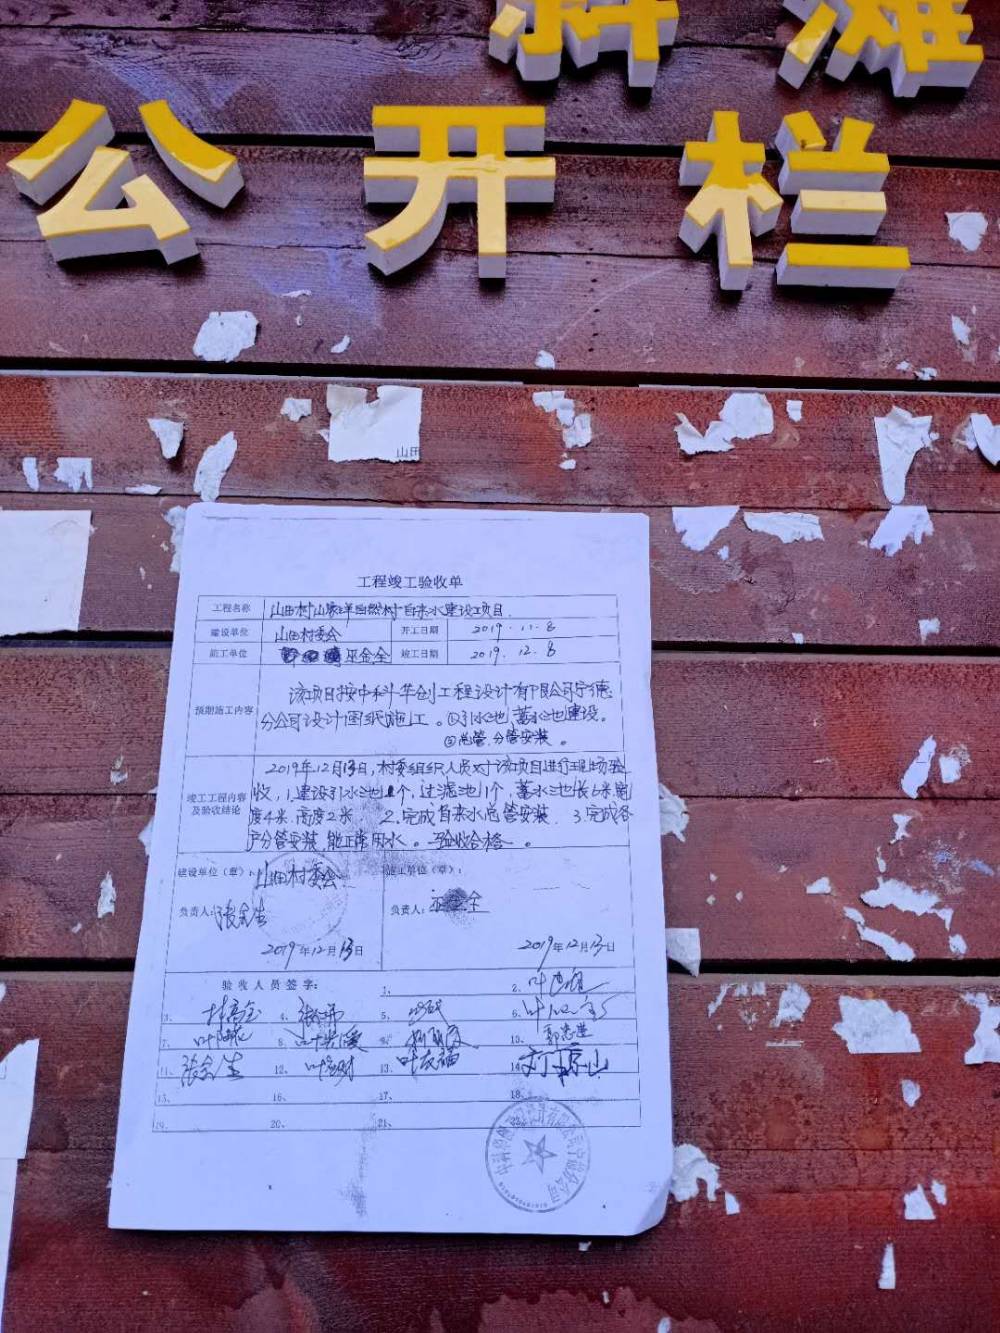 斜滩
公开栏
山田
工程竣工验收单
工程名称 山田村山家洋自然村自来水建设项目.
建设单位 山田村委会 开工日期 2019.11.8
施工单位 巫金全 竣工日期 2019.12.8
预期施工内容
该项目按中科华创工程设计有限公司宁德
分公司设计图纸施工。①引水池,蓄水池建设。
②总管,分管安装。
竣工工程内容
及验收结论
2019年12月13日,村委组织人员对该项目进行现场验
收,1.建设引水池1个,过滤池1个,蓄水池长6米宽
度4米.高度2米. 2.完成自来水总管安装. 3.完成各
户分管安装,能正常用水。验收合格。
建设单位(章):山田村委会 施工单位(章):
负责人:张金生 负责人:巫金全
2019年12月13日 2019年12月13日
验收人员签字: 1、 2、
3、 4、 5、 6、
7、 8、 9、 10、郭忠进
11、张金生 12、 13、叶友福 14、
15、 16、 17、 18、
19、 20、 21、